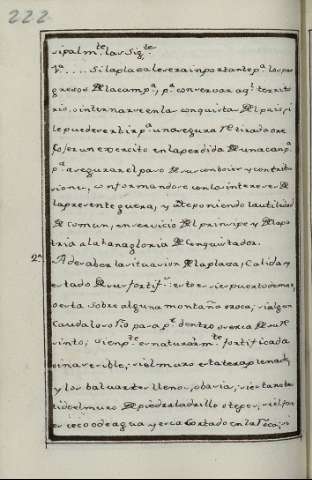 222
sipalm.te las sig.tes
1.a ..... Si la plaza les era inportante p.a los pro
gresos de la camp.a, p.a conservar aq.l territo
rio, o internarse en la conquista del pais, i
le puede servir p.a una segura retirada o re
fuerso un exercito en la perdida de una camp.a
p.a asegurar el paso de sus conboies y contribu
siones, conformandose con los intereses de
la presente guerra, y deteniendo la utilidad
de comun, en servicio del principe y de la pa
tria a la bana gloria de conquistador.
2.a A de saber la situasion de la plaza, Calidad y
estado de sus fortif.s esto es si es puerto de mar,
o esta sobre alguna montaña o roca; si algun
Caudaloso rio pasa p.r dentro o serca de su re
sinto, si en p.te es naturarm.te fortificada
e inacesible, si el muro esta terraplenado
y los baluartes llenos, o basia, si es tanto ba
tido el muro de piedra ladrillo o tepes, si el fos
es seco o de agua y esca cortado en la roca, si